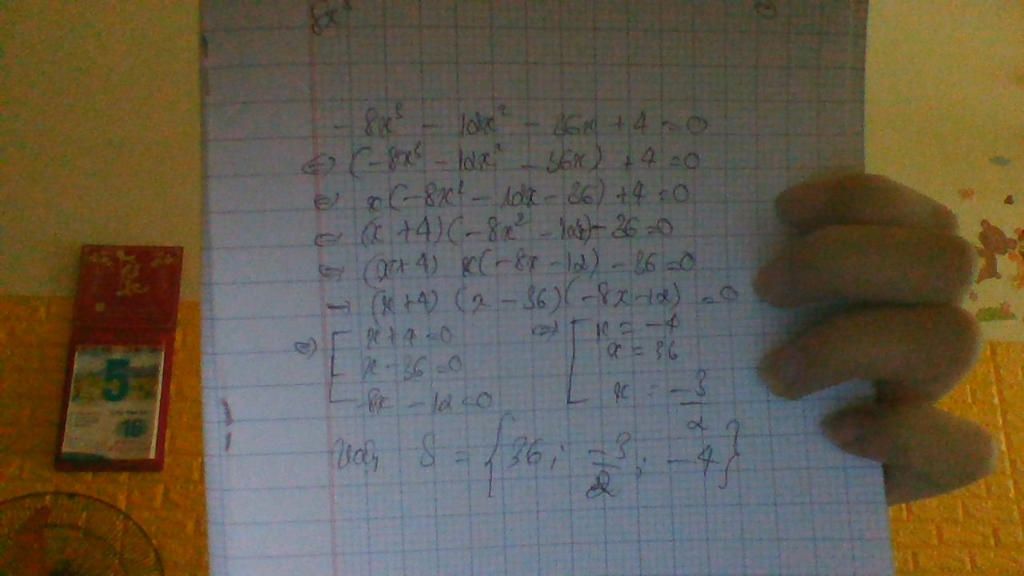 8x³
- 8x³ - 12x² - 36x + 4 = 0
⇔ (-8x³ - 12x² - 36x) + 4 = 0
⇔ x(-8x² - 12x - 36) + 4 = 0
⇔ (x + 4)(-8x² - 12x) - 36 = 0
⇔ (x+4) x(-8x - 12) - 36 = 0
(x+4) (x - 36)(-8x-12) = 0
⇔ [ x + 4 = 0 ⇔ [ x = -4
x - 36 = 0 x = 36
-8x - 12 = 0 x = -3/2
Vậy S = {36; -3/2; -4}
5
16